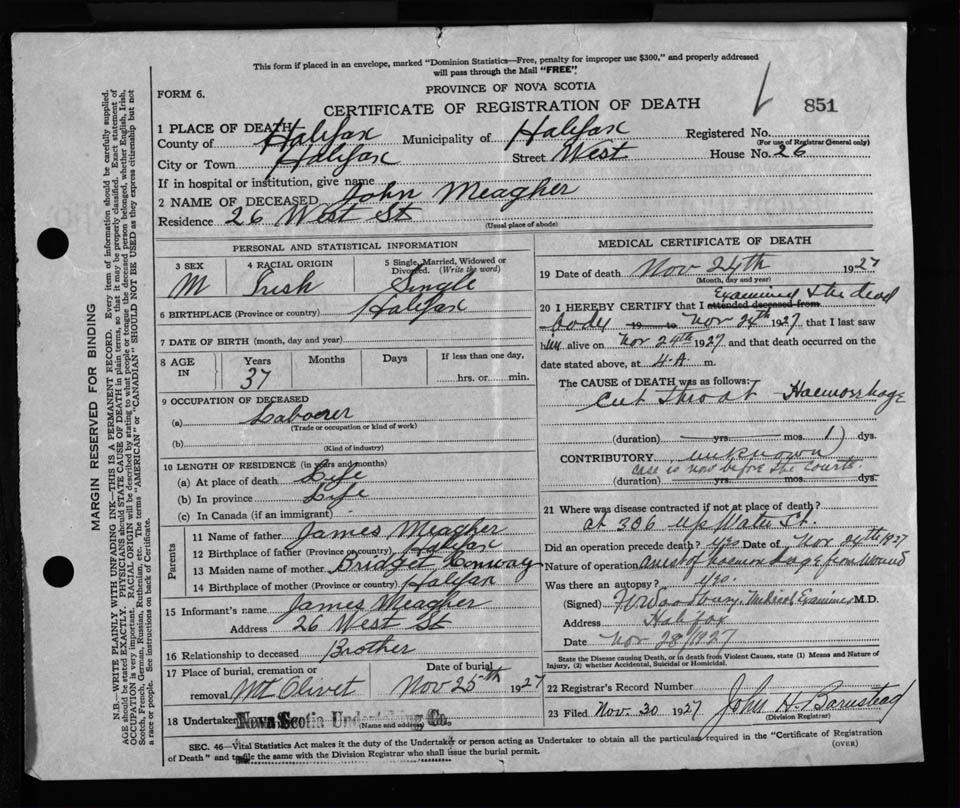 This form if placed in an envelope, marked "Dominion Statistics—Free, penalty for improper use $300," and properly addressed
will pass through the Mail "FREE".
FORM 6.
PROVINCE OF NOVA SCOTIA
CERTIFICATE OF REGISTRATION OF DEATH
851
1 PLACE OF DEATH
County of Halifax Municipality of Halifax Registered No.
(For use of Registrar General only)
City or Town Halifax Street West House No. 26
If in hospital or institution, give name
2 NAME OF DECEASED John Meagher
Residence 26 West St
(Usual place of abode)
PERSONAL AND STATISTICAL INFORMATION
3 SEX 4 RACIAL ORIGIN 5 Single, Married, Widowed or
Divorced. (Write the word)
M Irish Single
6 BIRTHPLACE (Province or country) Halifax
7 DATE OF BIRTH (month, day and year)
8 AGE IN Years Months Days If less than one day,
37 hrs. or min.
9 OCCUPATION OF DECEASED
(a) Laborer
(Trade or occupation or kind of work)
(b)
(Kind of industry)
10 LENGTH OF RESIDENCE (in years and months)
(a) At place of death Life
(b) In province Life
(c) In Canada (if an immigrant)
Parents
11 Name of father James Meagher
12 Birthplace of father (Province or country) Halifax
13 Maiden name of mother Bridget Conway
14 Birthplace of mother (Province or country) Halifax
15 Informant's name James Meagher
Address 26 West St
16 Relationship to deceased Brother
17 Place of burial, cremation or Date of burial
removal Mt Olivet Nov 25th 1927
18 Undertaker Nova Scotia Undertaking Co.
(Name and address)
MEDICAL CERTIFICATE OF DEATH
19 Date of death Nov 24th 1927
(Month, day and year)
20 I HEREBY CERTIFY that I attended deceased from Examined the dead
body 19 to Nov 24th 1927, that I last saw
him alive on Nov 24th 1927 and that death occurred on the
date stated above, at 4 A. m.
The CAUSE OF DEATH was as follows:
Cut Throat - Haemorrhage
(duration) yrs. mos. 1 dys.
CONTRIBUTORY unknown
case is now before the courts.
(duration) yrs. mos. dys.
21 Where was disease contracted if not at place of death?
at 306 Up Water St.
Did an operation precede death? yes Date of Nov 24th 1927
Nature of operation arrest of haemorrhage from wound
Was there an autopsy? yes.
(Signed) Woodbury Medical Examiner M.D.
Address Halifax
Date Nov 28/1927
State the Disease causing Death, or in death from Violent Causes, state (1) Means and Nature of
Injury, (2) whether Accidental, Suicidal or Homicidal.
22 Registrar's Record Number
23 Filed Nov. 30 1927 John H. Barnstead
(Division Registrar)
SEC. 46—Vital Statistics Act makes it the duty of the Undertaker or person acting as Undertaker to obtain all the particulars required in the "Certificate of Registration
of Death" and to file the same with the Division Registrar who shall issue the burial permit. (OVER)
MARGIN RESERVED FOR BINDING
N.B.—WRITE PLAINLY WITH UNFADING INK—THIS IS A PERMANENT RECORD. Every item of information should be carefully supplied.
AGE should be stated EXACTLY. PHYSICIANS should STATE CAUSE OF DEATH in plain terms, so that it may be properly classified. Exact statement of
OCCUPATION is very important. RACIAL ORIGIN will be described by stating to what people or tongue the deceased person belonged, whether English, Irish,
Scotch, French, German, Russian, Ruthenian, etc. The terms "AMERICAN" or "CANADIAN" SHOULD NOT BE USED as they express citizenship but not
a race or people. See instructions on back of Certificate.